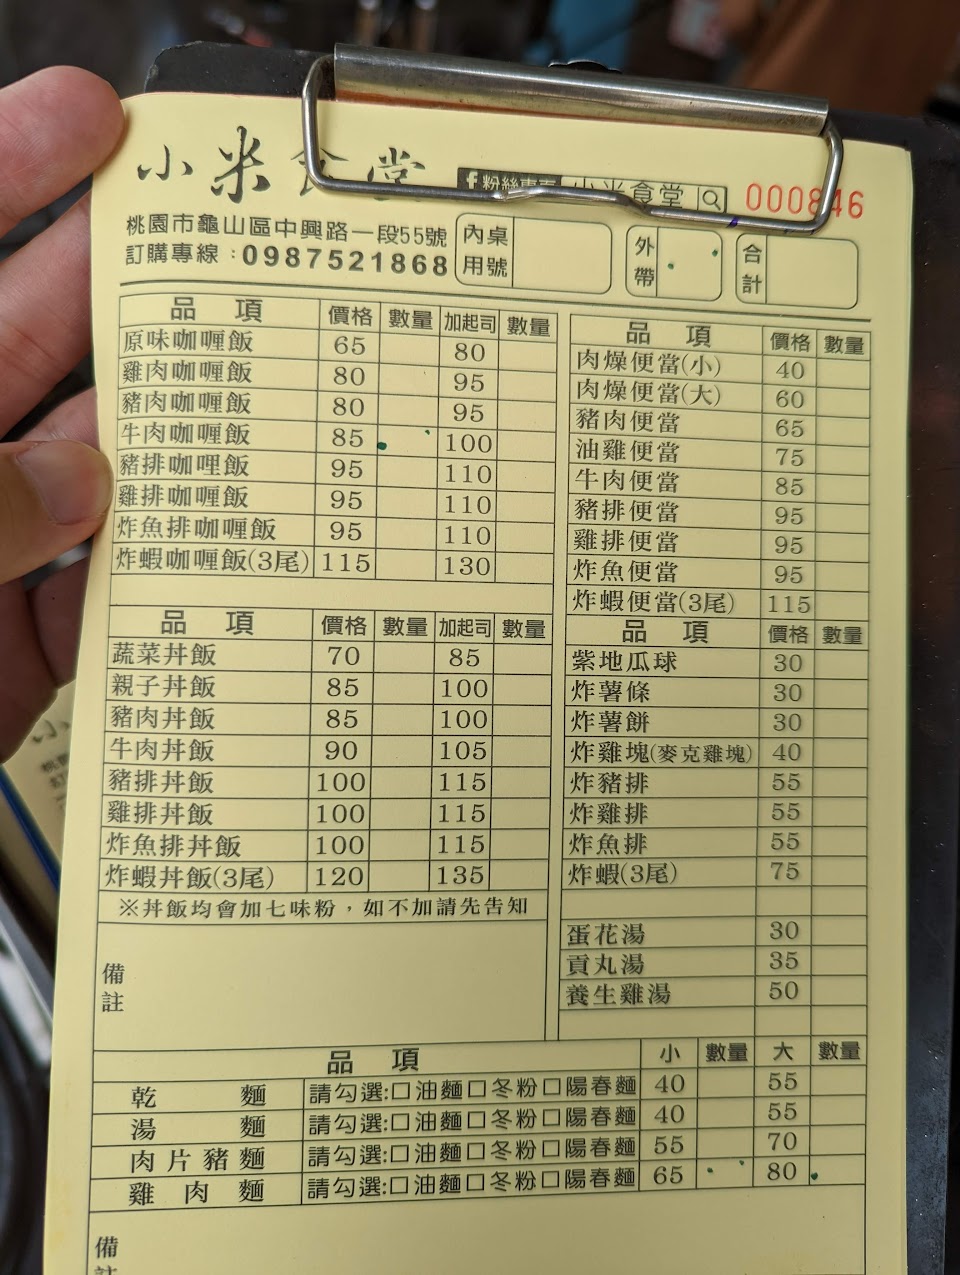 小米食堂
粉絲專頁 小米食堂
000846
桃園市龜山區中興路一段55號
訂購專線：0987521868
內用 桌號
外帶
合計
品項 價格 數量 加起司 數量
原味咖喱飯 65 80
雞肉咖喱飯 80 95
豬肉咖喱飯 80 95
牛肉咖喱飯 85 100
豬排咖哩飯 95 110
雞排咖喱飯 95 110
炸魚排咖喱飯 95 110
炸蝦咖喱飯(3尾) 115 130
品項 價格 數量 加起司 數量
蔬菜丼飯 70 85
親子丼飯 85 100
豬肉丼飯 85 100
牛肉丼飯 90 105
豬排丼飯 100 115
雞排丼飯 100 115
炸魚排丼飯 100 115
炸蝦丼飯(3尾) 120 135
※丼飯均會加七味粉，如不加請先告知
備註
品項 價格 數量
肉燥便當(小) 40
肉燥便當(大) 60
豬肉便當 65
油雞便當 75
牛肉便當 85
豬排便當 95
雞排便當 95
炸魚便當 95
炸蝦便當(3尾) 115
品項 價格 數量
紫地瓜球 30
炸薯條 30
炸薯餅 30
炸雞塊(麥克雞塊) 40
炸豬排 55
炸雞排 55
炸魚排 55
炸蝦(3尾) 75
蛋花湯 30
貢丸湯 35
養生雞湯 50
品項 小 數量 大 數量
乾麵 請勾選:□油麵□冬粉□陽春麵 40 55
湯麵 請勾選:□油麵□冬粉□陽春麵 40 55
肉片豬麵 請勾選:□油麵□冬粉□陽春麵 55 70
雞肉麵 請勾選:□油麵□冬粉□陽春麵 65 80
備註